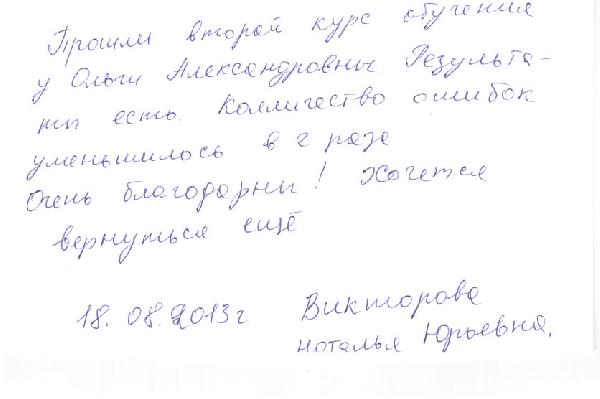 Прошли второй курс обучения
у Ольги Александровны. Результа-
ты есть. Колличество ошибок
уменьшилось в 2 раза
Очень благодарны! Хочется
вернуться ещё
18.08.2013г Викторова
Наталья Юрьевна.